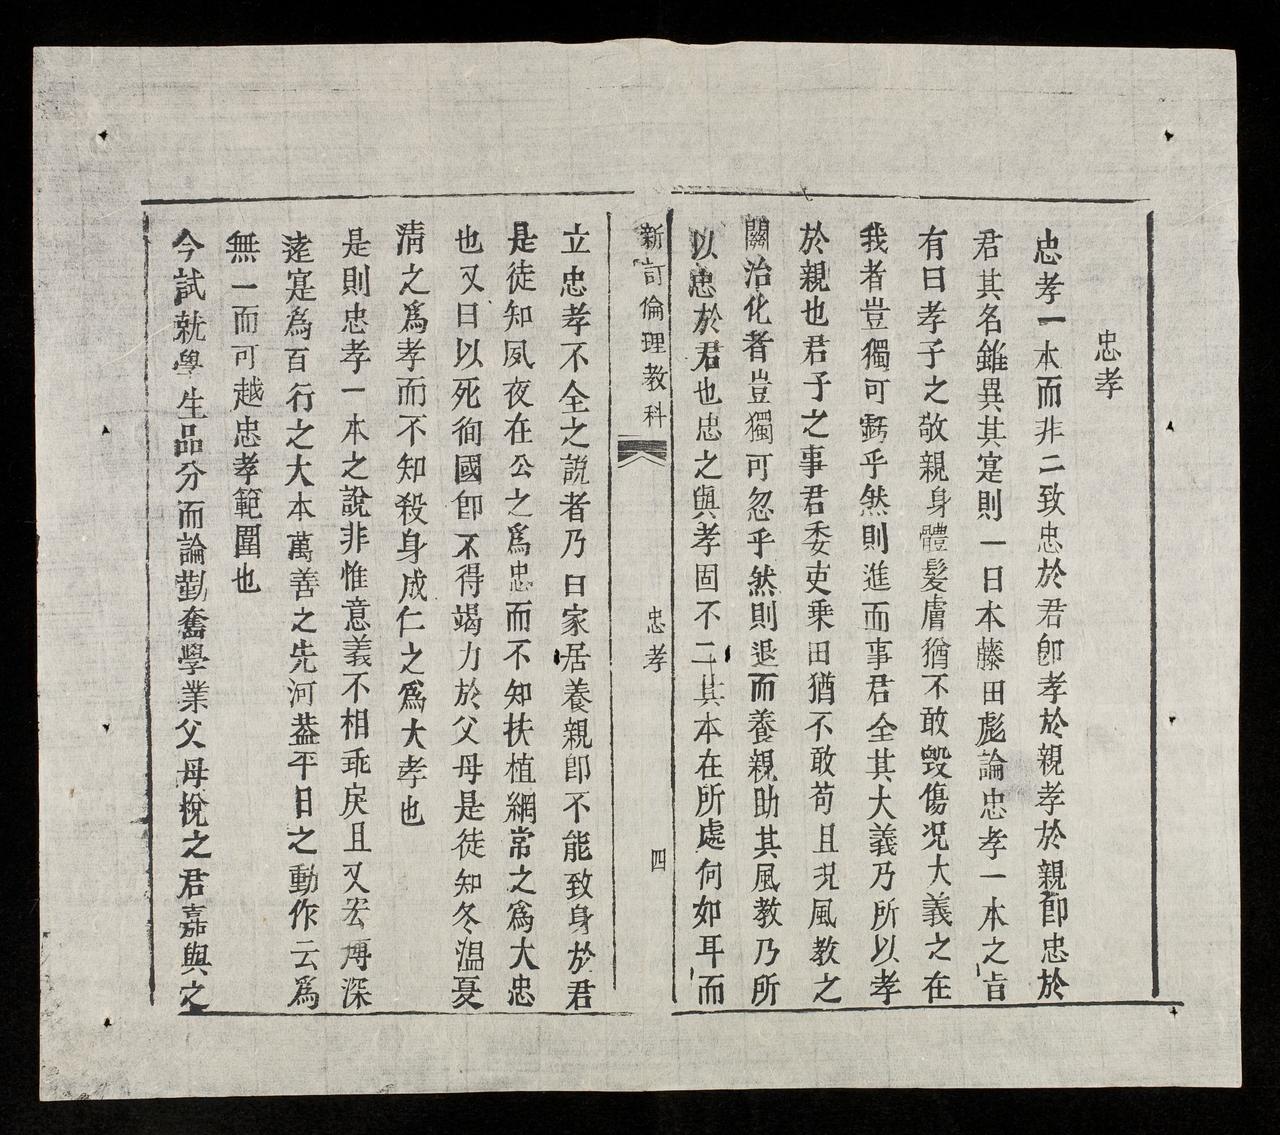 忠孝
忠孝一本而非二致忠於君卽孝於親孝於親卽忠於
君其名雖異其寔則一日本藤田彪論忠孝一本之旨
有曰孝子之敬親身體髮膚猶不敢毀傷況大義之在
我者豈獨可虧乎然則進而事君全其大義乃所以孝
於親也君子之事君委吏乘田猶不敢苟且況風教之
關治化者豈獨可忽乎然則退而養親助其風教乃所
以忠於君也忠之與孝固不二其本在所處何如耳而
新訂倫理教科 忠孝 四
立忠孝不全之說者乃曰家居養親卽不能致身於君
是徒知夙夜在公之爲忠而不知扶植綱常之爲大忠
也又曰以死徇國卽不得竭力於父母是徒知冬溫夏
凊之爲孝而不知殺身成仁之爲大孝也
是則忠孝一本之說非惟意義不相乖戾且又宏博深
遠寔爲百行之大本萬善之先河蓋平日之動作云爲
無一而可越忠孝範圍也
今試就學生品分而論勤奮學業父母悅之君嘉與之